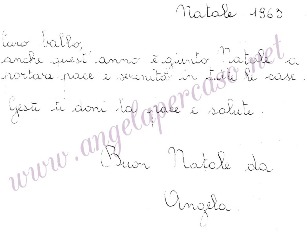 Natale 1963
caro babbo,
anche quest'anno è giunto Natale a
portare pace e serenità in tutte le case.
Gesù ti doni la pace e salute.
Buon Natale da
Angela
www.angelapercaso.net